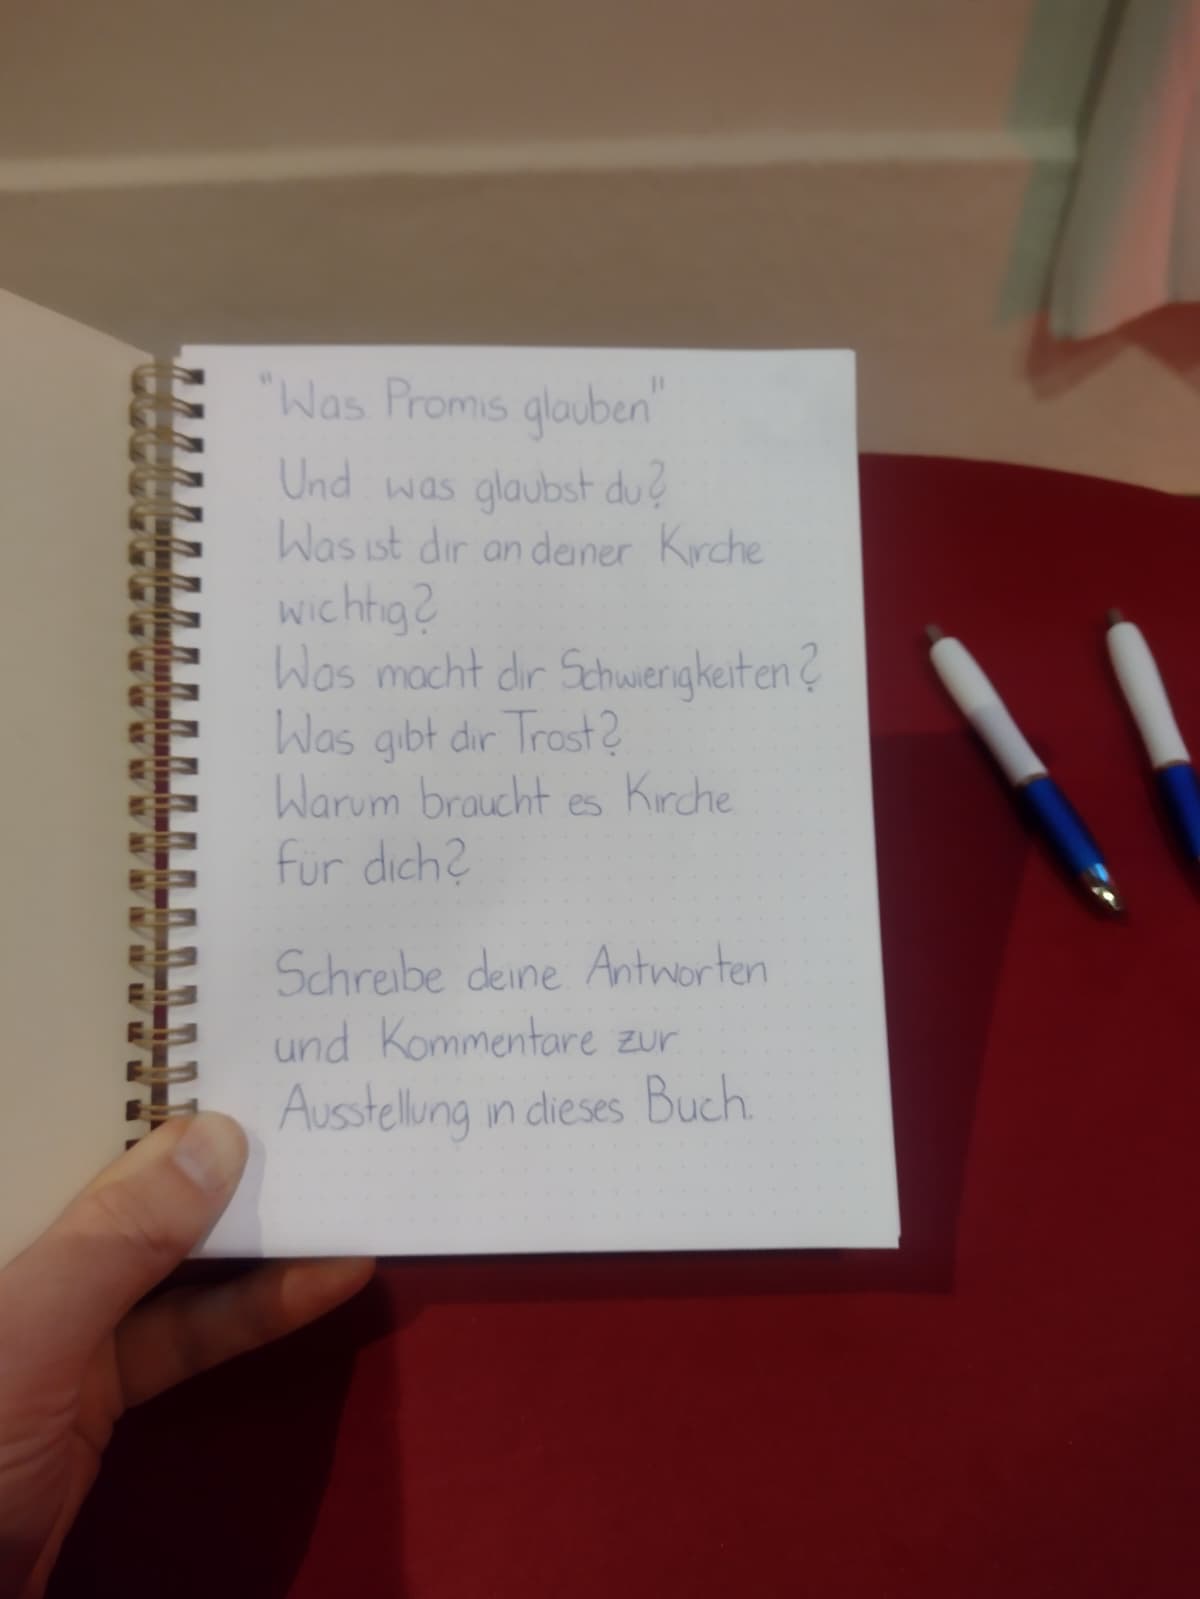 "Was Promis glauben"
Und was glaubst du?
Was ist dir an deiner Kirche
wichtig?
Was macht dir Schwierigkeiten?
Was gibt dir Trost?
Warum braucht es Kirche
für dich?
Schreibe deine Antworten
und Kommentare zur
Ausstellung in dieses Buch.